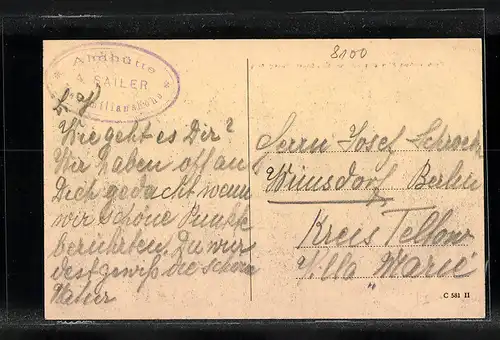 8100
Almhütte
A. SAILER
L. J.
Wie geht es Dir?
Wir haben oft an
Dich gedacht wenn
wir schöne Punkte
berührten. Du wür
dest gewiß die schöne
Natur
Herrn Josef Schroeder
Wünsdorf Berlin
Kreis Teltow
Villa "Marie"
C 581 II